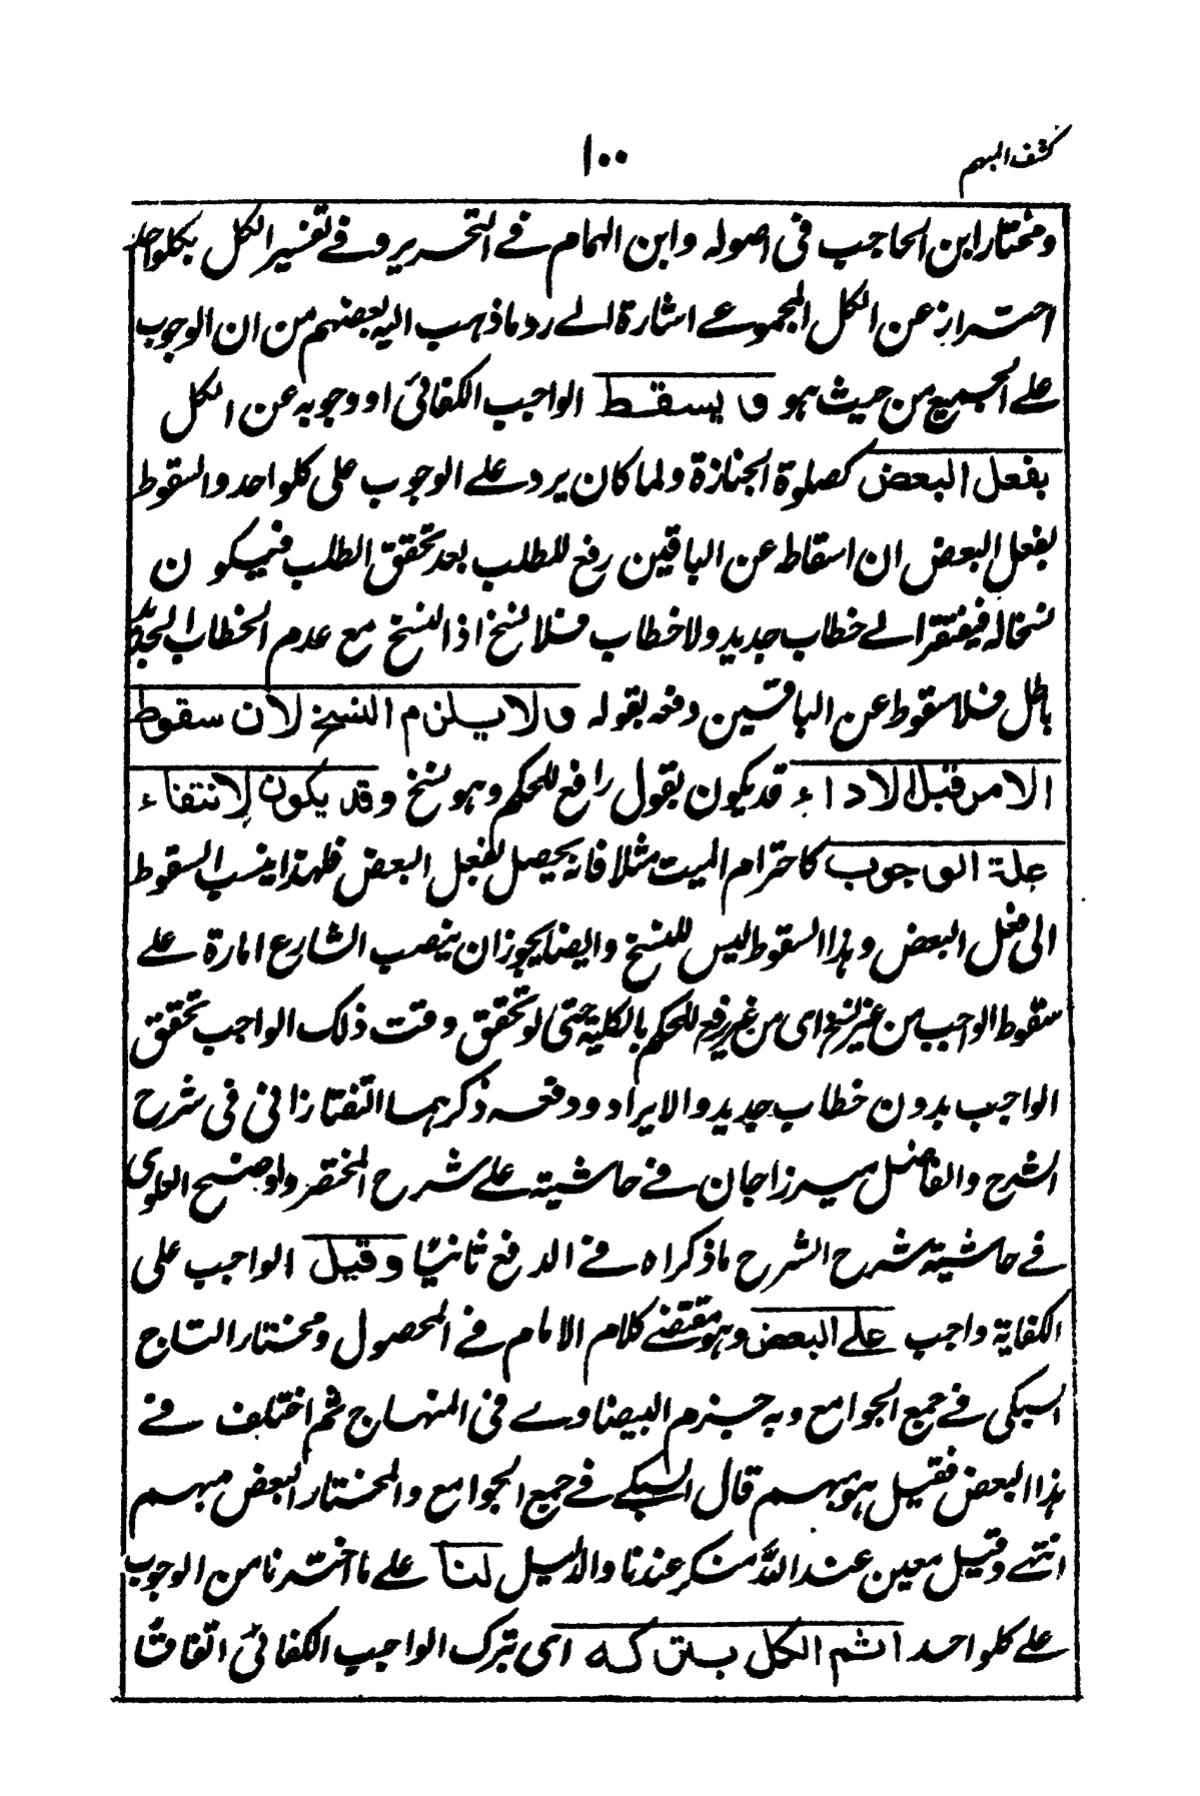 كشف المبهم
١٠٠
ومختار ابن الحاجب فى اصوله وابن الهمام في التحرير وفي تفسير الكل بكلواحد
احتراز عن الكل المجموعي اشارة الى رد ما ذهب اليه بعضهم من ان الوجوب
على الجميع من حيث هو ويسقط الواجب الكفائى او وجوبه عن الكل
بفعل البعض كصلوة الجنازة ولما كان يرد على الوجوب على كلواحد والسقوط
بفعل البعض ان اسقاط عن الباقين رفع للطلب بعد تحقق الطلب فيكون
نسخا له فيفتقر الى خطاب جديد ولا خطاب فلا نسخ اذ النسخ مع عدم الخطاب الجديد
باطل فلا سقوط عن الباقين دفعه بقوله ولا يلزم النسخ لان سقوط
الامر قبل الاداء قد يكون بقول رافع للحكم وهو نسخ وقد يكون لانتفاء
علة الوجوب كاحترام الميت مثلا فانه يحصل بفعل البعض فلهذا ينسب السقوط
الى فعل البعض وهذا السقوط ليس للنسخ وايضا يجوز ان ينصب الشارع امارة على
سقوط الواجب من غير نسخ اى من غير رفع للحكم بالكلية حتى لو تحقق وقت ذلك الواجب تحقق
الواجب بدون خطاب جديد والايراد ودفعه ذكرهما التفتازانى فى شرح
الشرح والفاضل ميرزاجان في حاشيته على شرح المختصر واوضح العلوى
في حاشية شرح الشرح ما ذكراه في الدفع ثانيًا وقيل الواجب على
الكفاية واجب على البعض وهو مقتضى كلام الامام في المحصول ومختار التاج
السبكى في جمع الجوامع وبه جزم البيضاوي فى المنهاج ثم اختلف في
هذا البعض فقيل هو مبهم قال السبكي في جمع الجوامع والمختار البعض مبهم
انتهى وقيل معين عند الله منكر عندنا والدليل لنا على ما اخترنا من الوجوب
على كلواحد اثم الكل بتركه اى بترك الواجب الكفائى اتفاقًا